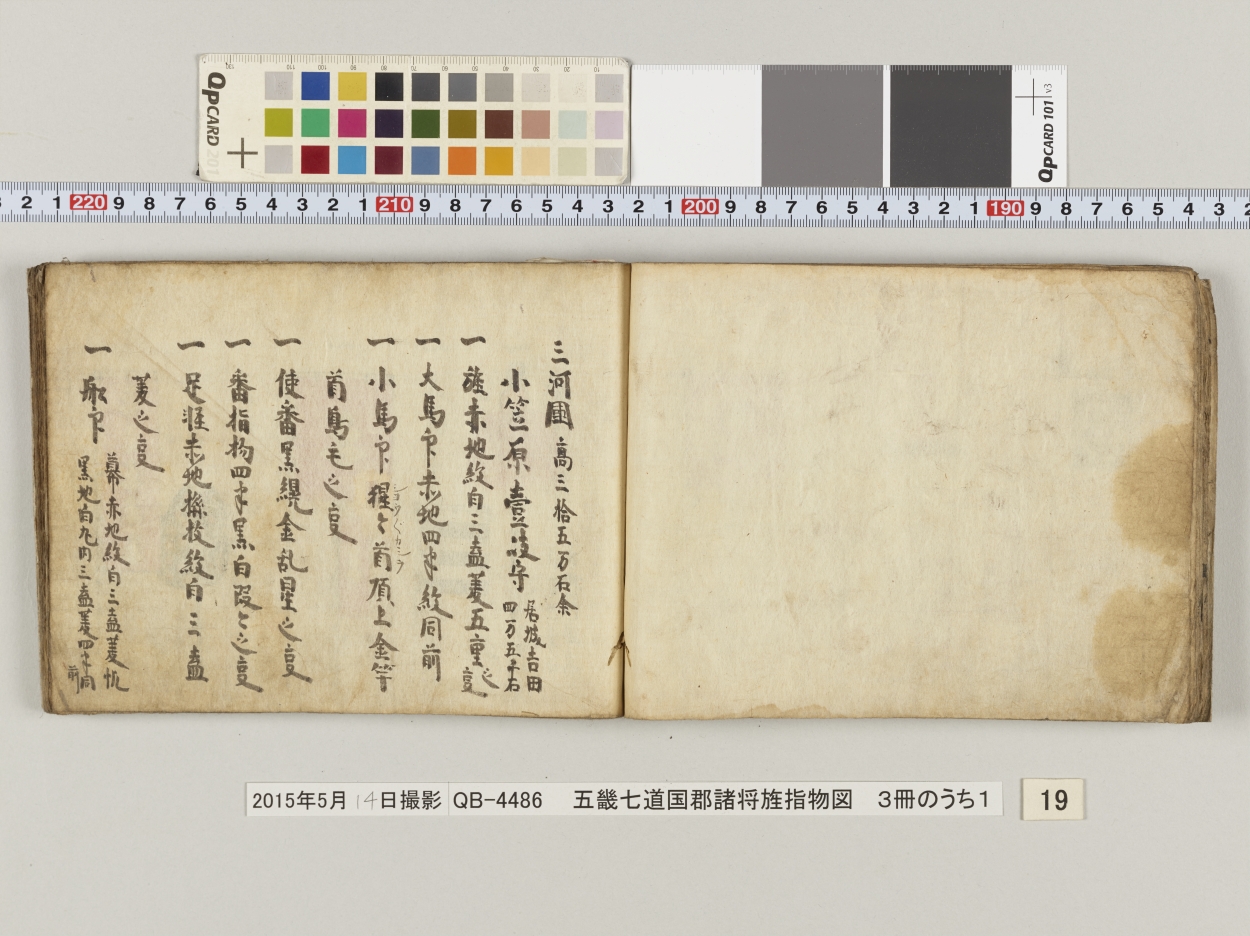 QpCARD 201
QpCARD 101 v3
2 1 220 9 8 7 6 5 4 3 2 1 210 9 8 7 6 5 4 3 2 1 200 9 8 7 6 5 4 3 2 1 190 9 8 7 6 5 4 3
三河國 高三拾五万石余
小笠原壹岐守 居城吉田
四万五千石
一 旌赤地紋白三盖菱五重之㝡
一 大馬印赤地四半紋同前
一 小馬印猩々首頂上金竿
ショウ〴〵カシラ
首鳥毛之㝡
一 使番黒幌金乱星之㝡
一 番指物四半黒白段々之㝡
一 足軽赤地 紋白三盖
菱之㝡
一 船印 幕赤地紋白三盖菱帆
黒地白丸内三盖菱四半同
前
2015年5月14日撮影 QB-4486 五畿七道国郡諸将旌指物図 3冊のうち1
19